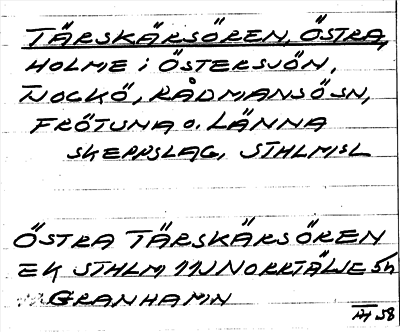 TÄRSKÄRSÖREN, ÖSTRA,
HOLME i ÖSTERSJÖN,
TJOCKÖ, RÅDMANSÖ SN,
FRÖTUNA o. LÄNNA
SKEPPSLAG, STHLMS L
ÖSTRA TÄRSKÄRSÖREN
EK STHLM 11J NORRTÄLJE 5h
GRANHAMN
58